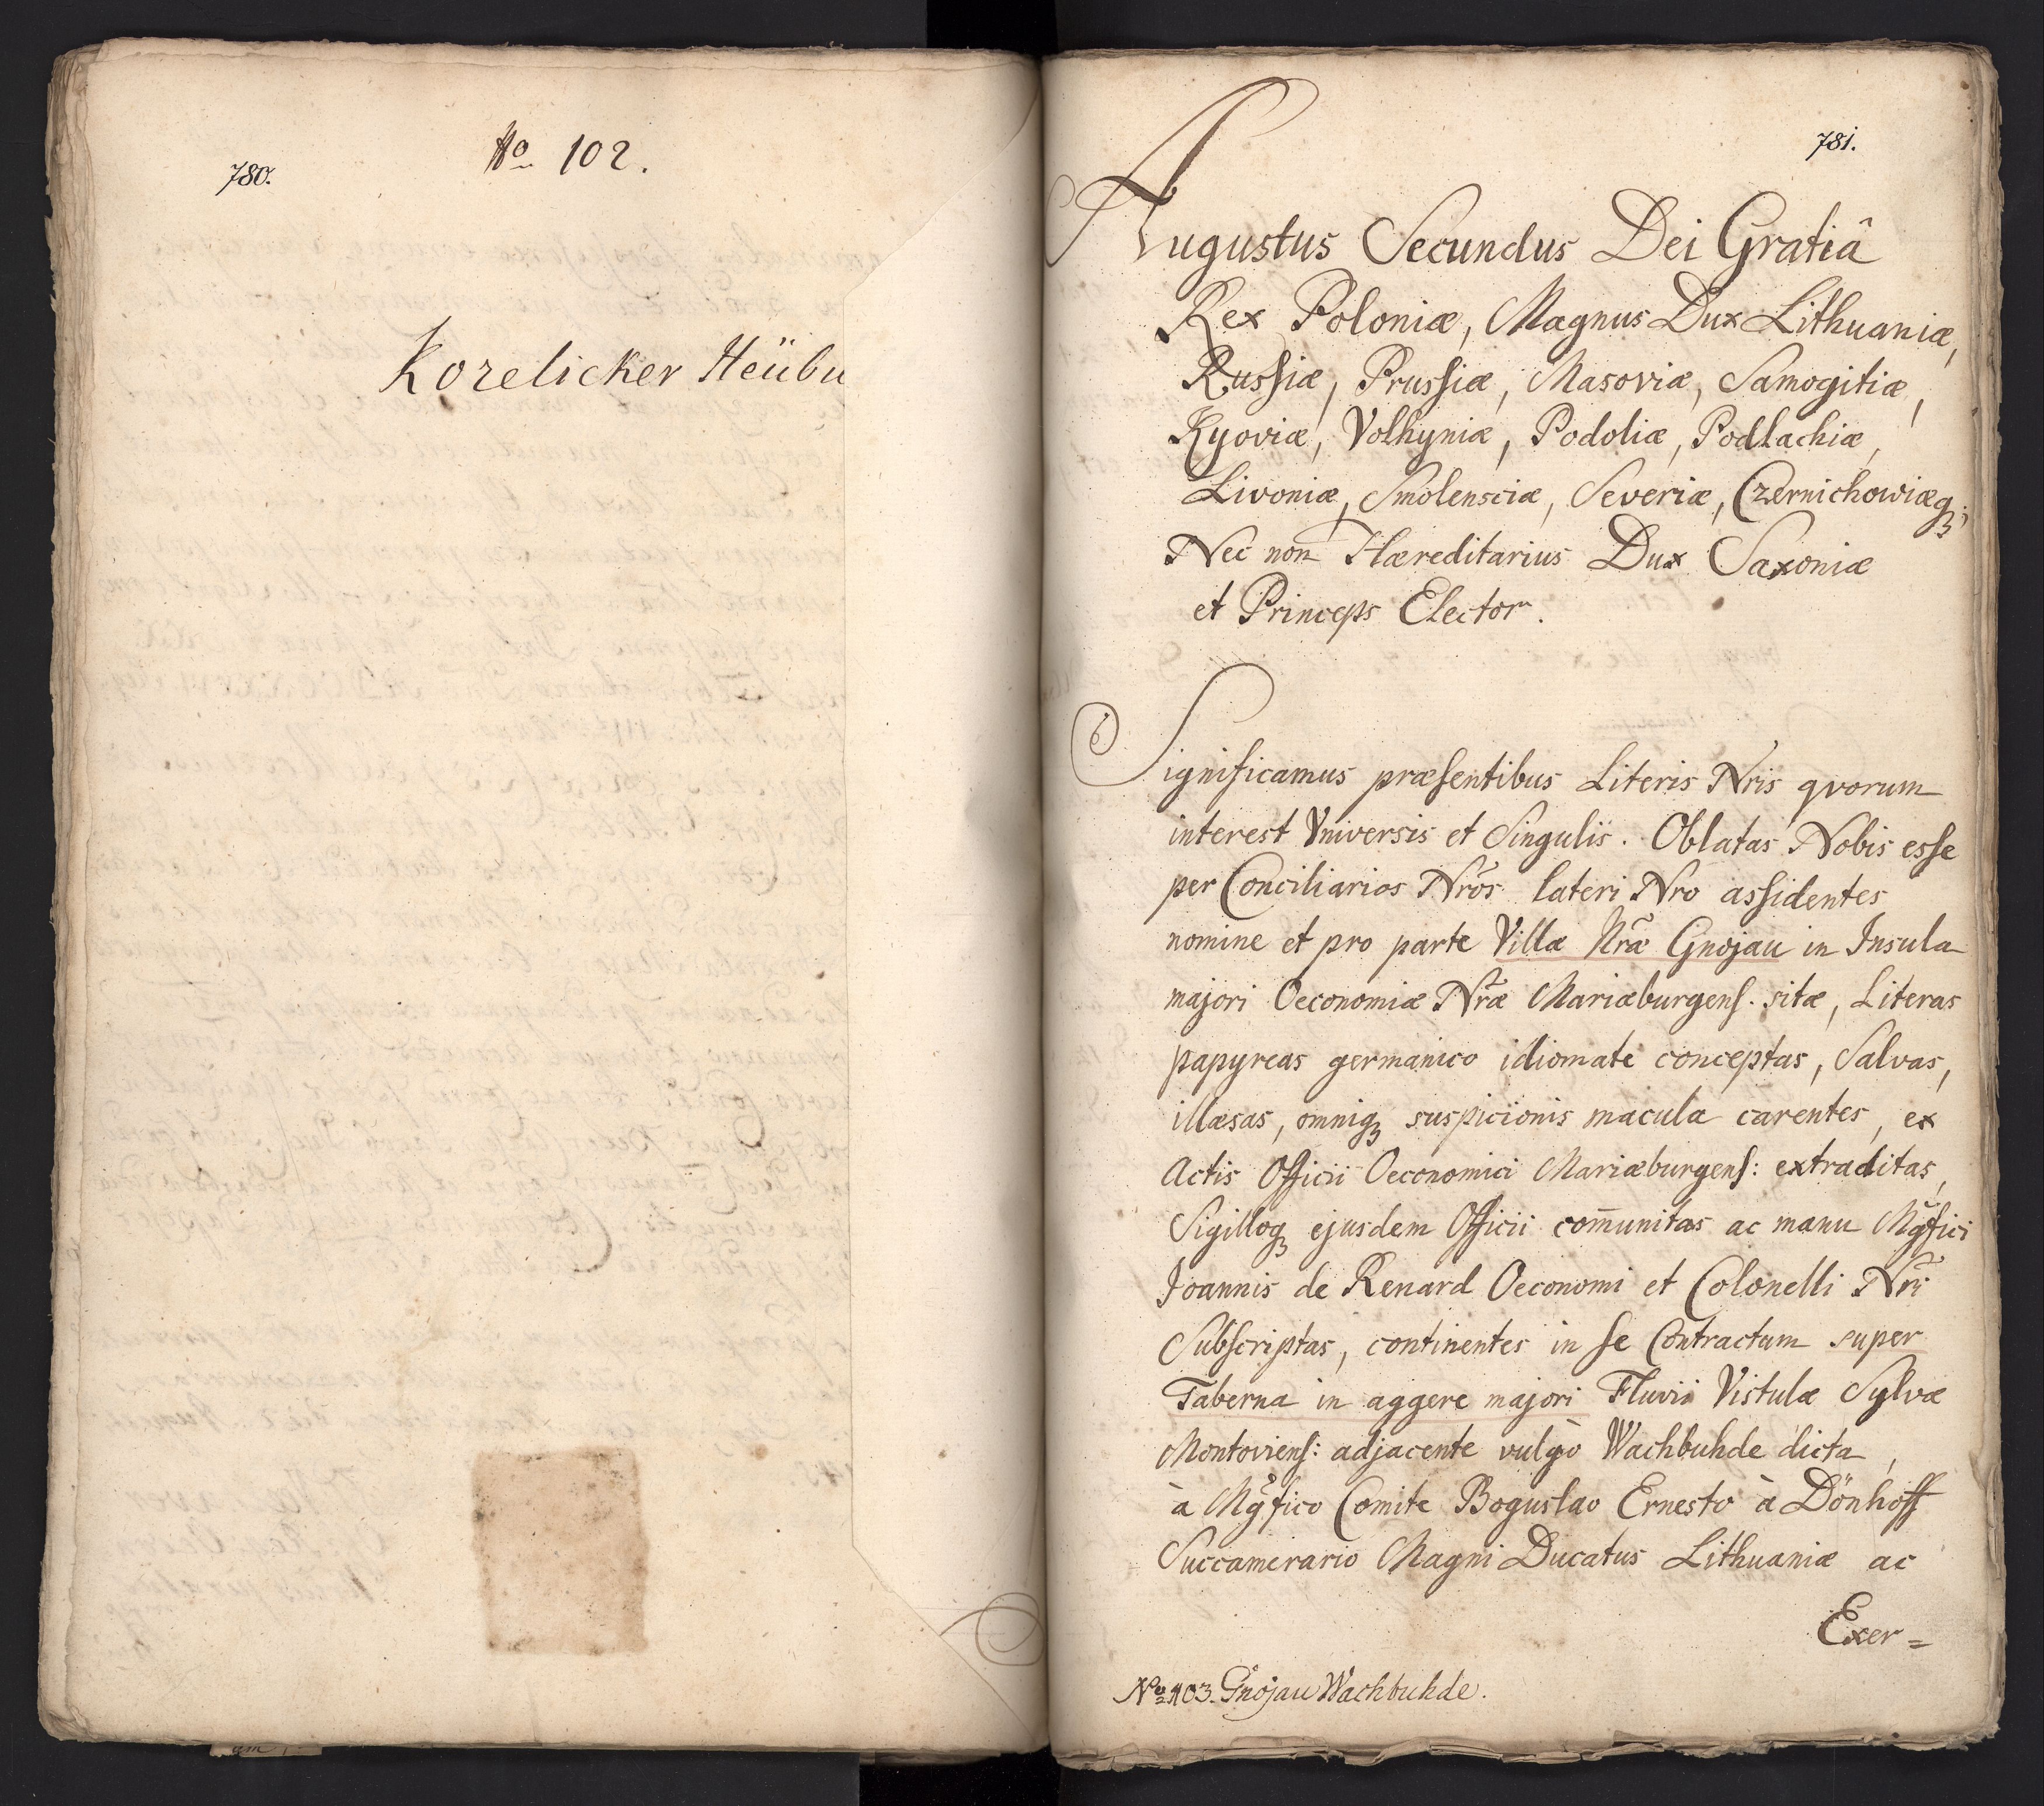 780.
No 102.
Kozelicker Heübu
781.
Augustus Secundus Dei Gratiâ
Rex Poloniæ, Magnus Dux Lithuaniæ,
Russiæ, Prussiæ, Masoviæ, Samogitiæ,
Kyoviæ, Volhyniæ, Podoliæ, Podlachiæ,
Livoniæ, Smolensciæ, Severiæ, Czernichowiæq;
Nec non Hæreditarius Dux Saxoniæ
et Princeps Elector.
Significamus præsentibus Literis Nris qvorum
interest Vniversis et Singulis. Oblatas Nobis esse
per Conciliarios Nros lateri Nro assidentes
nomine et pro parte Villæ Nræ Gnojau in Insula
majori Oeconomiæ Nræ Mariæburgens. sitæ, Literas
papyreas germanico idiomate conceptas, Salvas,
illæsas, omniq; suspicionis macula carentes, ex
Actis Officii Oeconomici Mariæburgens: extraditas,
Sigilloq; ejusdem Officii com̄unitas ac manu Mgfici
Joannis de Renard Oeconomi et Colonelli Nri
Subscriptas, continentes in se Contractum super
Taberna in aggere majori Fluvii Vistulæ Sylvæ
Montoviens: adjacente vulgò Wachbuhde dicta,
à Mgfico Comite Boguslao Ernesto à Dönhoff
Succamerario Magni Ducatus Lithuaniæ ac
Exer=
No 103. Gnojau Wachbuhde.